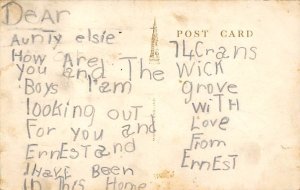 Dear
Aunty elsie
How Are
you and The
Boys I am
looking out
For you and
ErnEST and
I Have Been
In This Home
POST CARD
74 Crans
Wick
grove
WITH
Love
From
ErnEST